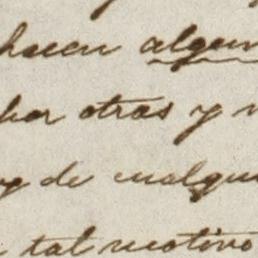 hacen algun
por otras y
y de cualqui
tal motivo